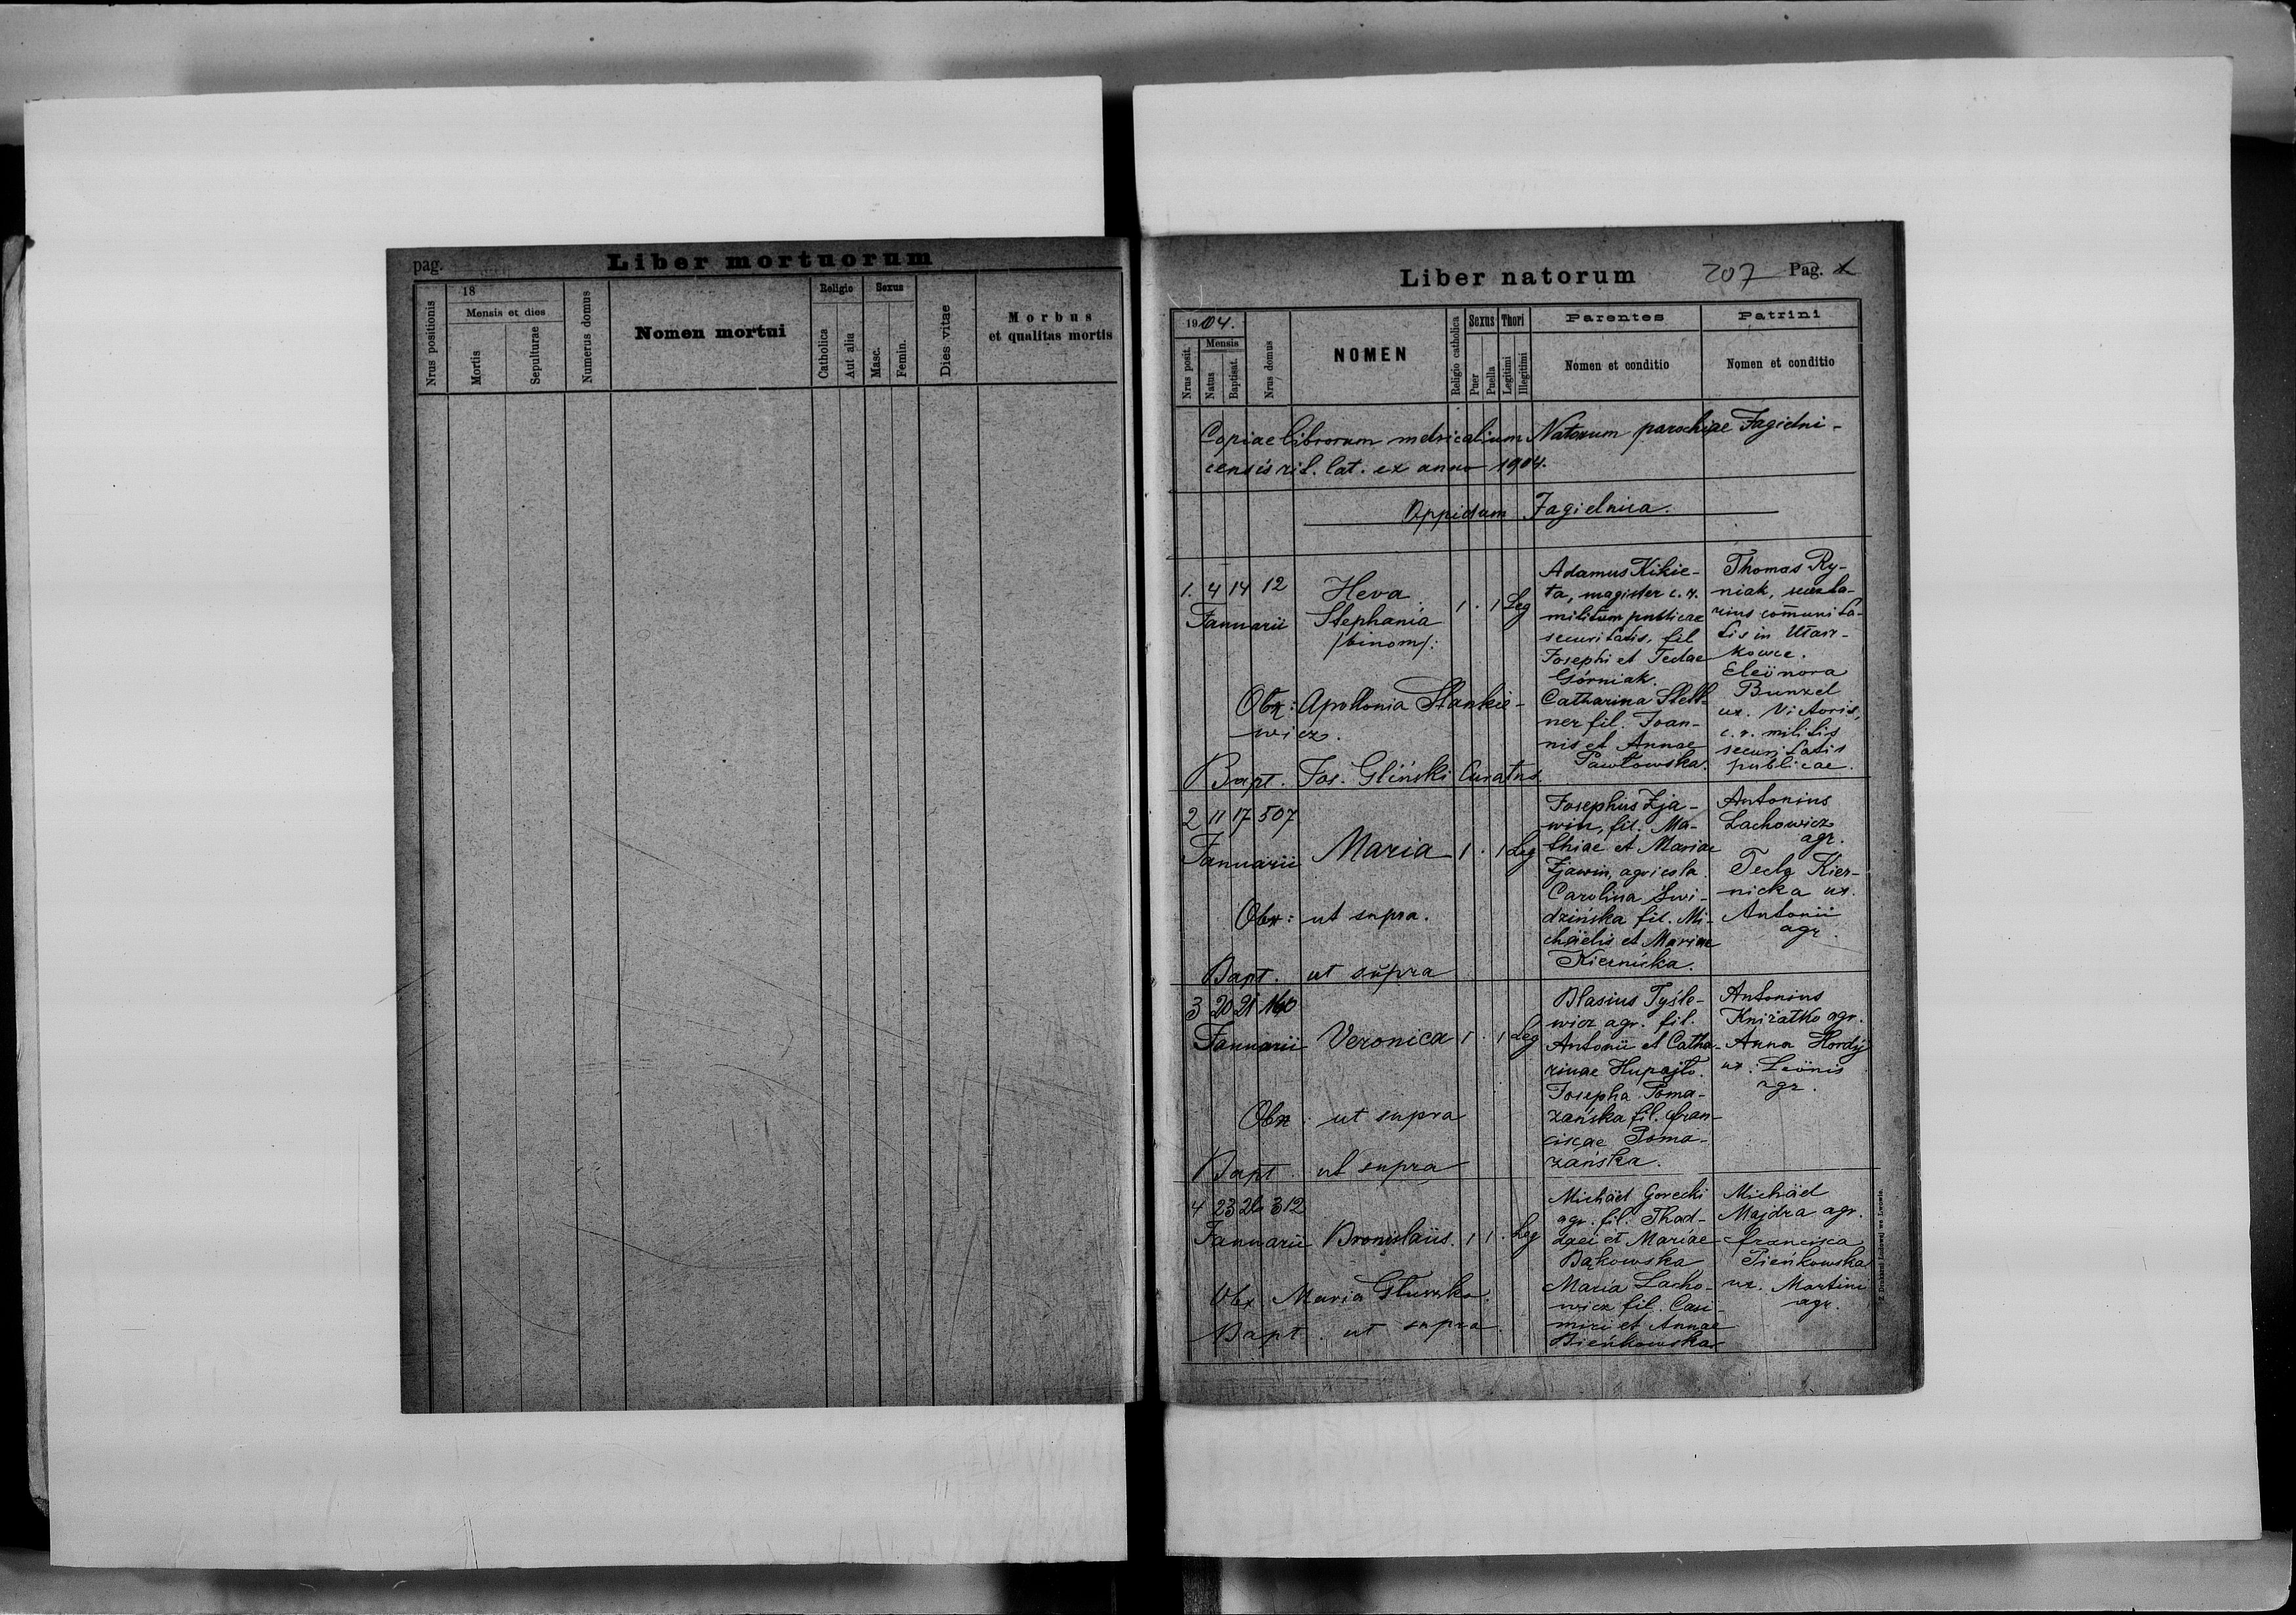 pag.
Liber mortuorum
Nrus positionis
18
Mensis et dies
Mortis
Sepulturae
Numerus domus
Nomen mortui
Religio
Catholica
Aut alia
Sexus
Masc.
Femin.
Dies vitae
Morbus
et qualitas mortis
Liber natorum
207 Pag.
1904.
Nrus posit.
Mensis
Natus
Baptisat.
Nrus domus
NOMEN
Religio catholica
Sexus
Puer
Puella
Thori
Legitimi
Illegitimi
Parentes
Nomen et conditio
Patrini
Nomen et conditio
Copiae librorum metricalium Natorum parochiae Jagielni-
censis rit. lat. ex anno 1904.
Oppidum Jagielnica.
1. 4 14 12
Januarii
Heva
Stephania
/binom/:
1 . 1 Leg
Adamus Kikie-
ta, magister c. r.
militum publicae
securitatis, fil
Josephi et Teclae
Górniak.
Catharina Stell-
ner fil. Joan-
nis et Annae
Pawłowska.
Thomas Ry-
niak,
rius communita-
tis in Ułasz-
kowce.
Eleonora
Bunzel
ux. Victoris,
c. r. militis
securitatis
publicae.
Obx: Apollonia Stankie-
wicz.
Bapt. Jos. Gliński Curatus.
2 11 17 507
Januarii
Maria
1 . 1 Leg
Josephus Zja-
win, fil. Ma-
thiae et Mariae
Zjawin, agricola.
Carolina Świ-
dzińska fil. Mi-
chaëlis et Mariae
Kiernicka.
Antonius
Lachowicz
agr.
Tecla Kier-
nicka ux.
Antonii
agr.
Obx: ut supra.
Bapt. ut supra
3 20 21 160
Januarii
Veronica
1 . 1 Leg
Blasius Tyśle-
wicz agr. fil.
Antonii et Catha-
rinae Hupajło.
Josepha Poma-
zańska fil. fran-
ciscae Poma-
zańska.
Antonius
Kniżatko agr.
Anna Hordÿ
ux. Leonis
agr.
Obx: ut supra
Bapt. ut supra
4 23 26 312
Januarii
Bronislaüs.
1 1 . Leg
Michaël Gorecki
agr. fil. Thad-
daei et Mariae
Bąkowska
Maria Lacho-
wicz fil. Casi-
miri et Annae
Bieńkowska
Michaël
Majdra agr.
francisca
Pieńkowska
ux. Martini
agr.
Obx Maria Głuszko.
Bapt. ut supra.
Z Drukarni Ludowej we Lwowie.